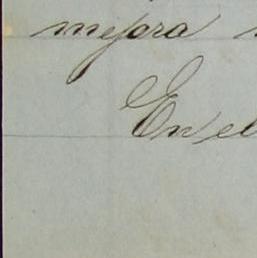 mejora
En el